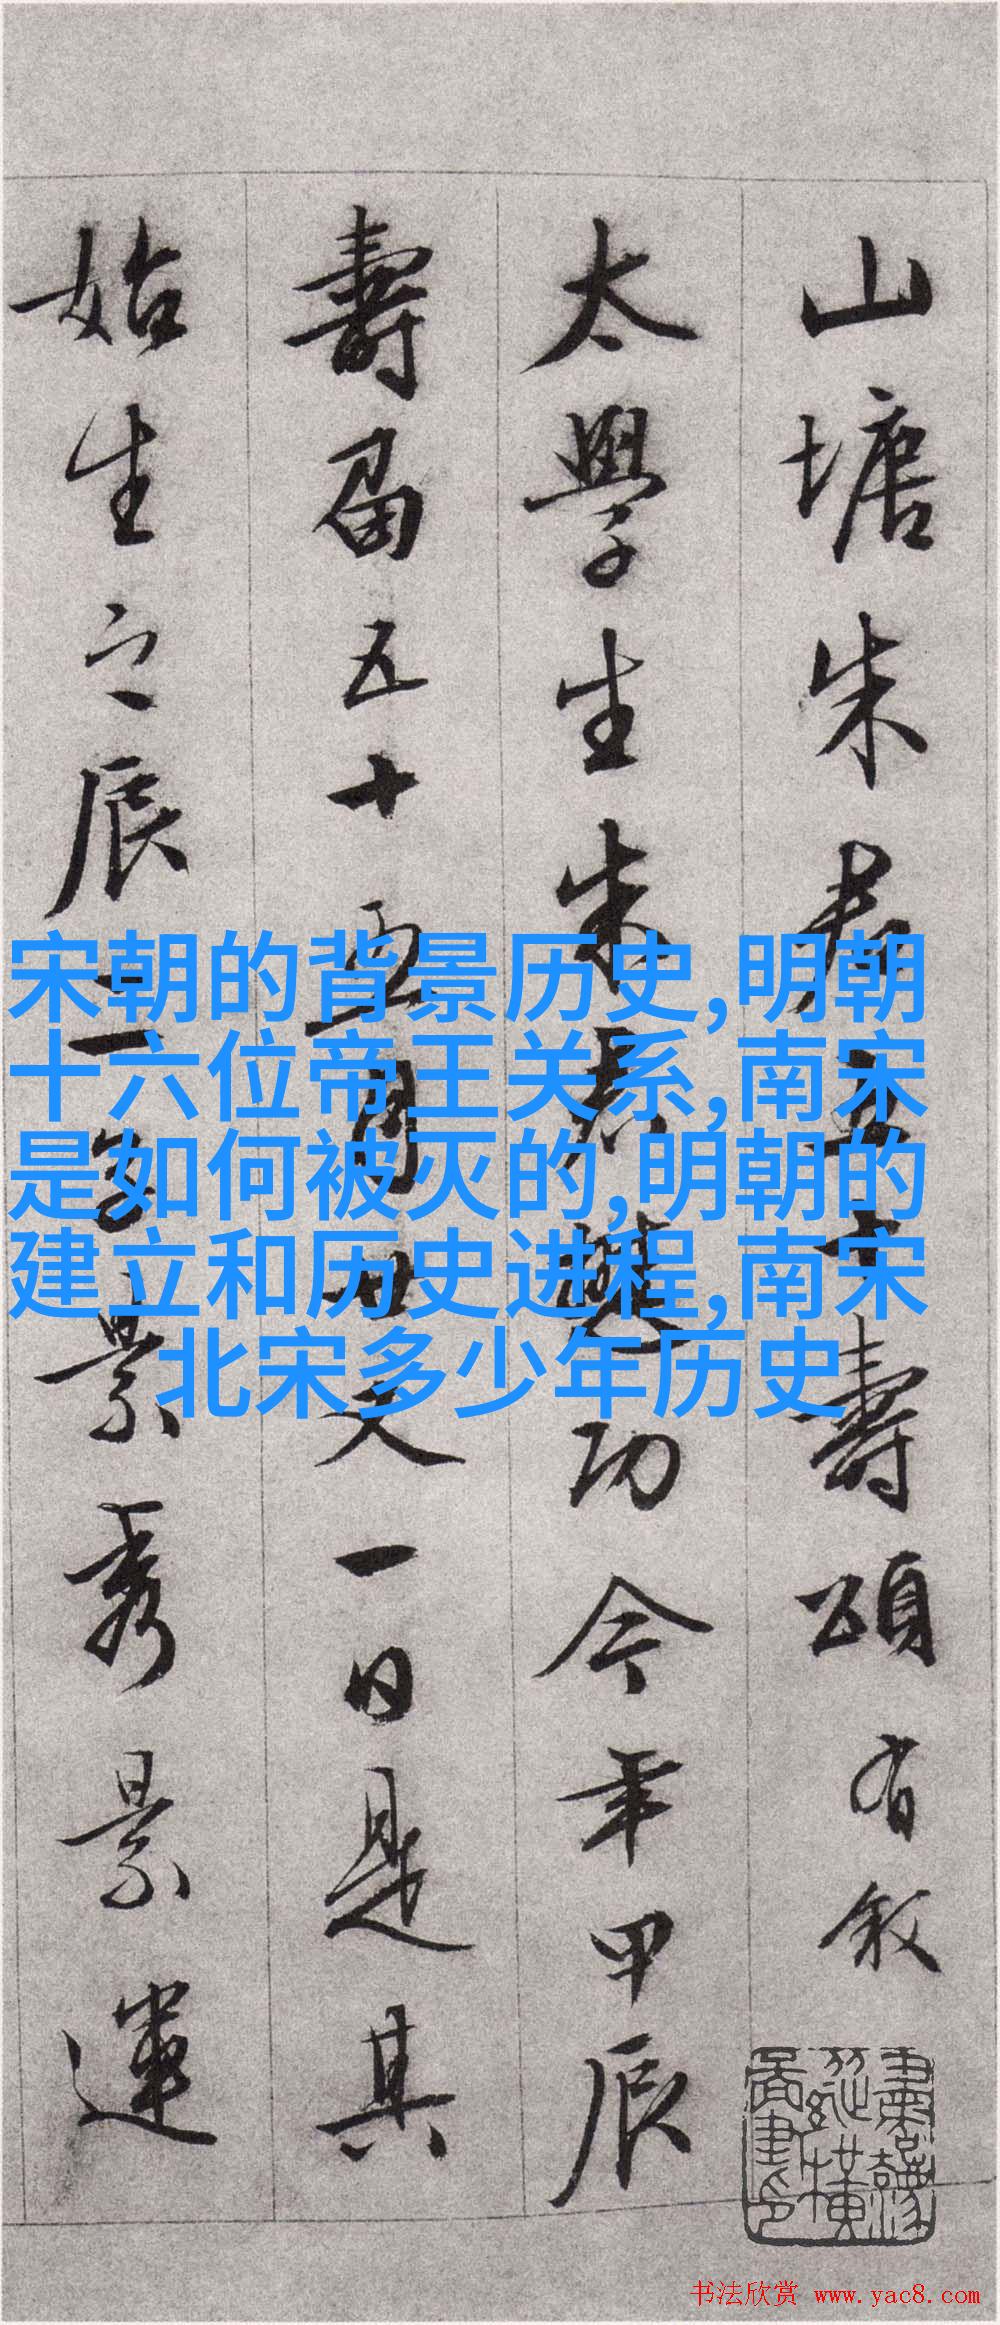 山塘朱君五十壽頌有敘
太學生朱君懋功今年甲辰
壽屆五十月廿又一日是其
始生之辰二子景秀景運
宋朝的背景历史,明朝
十六位帝王关系,南宋
是如何被灭的,明朝的
建立和历史进程,南宋
北宋多少年历史
书法欣赏 www.yac8.com